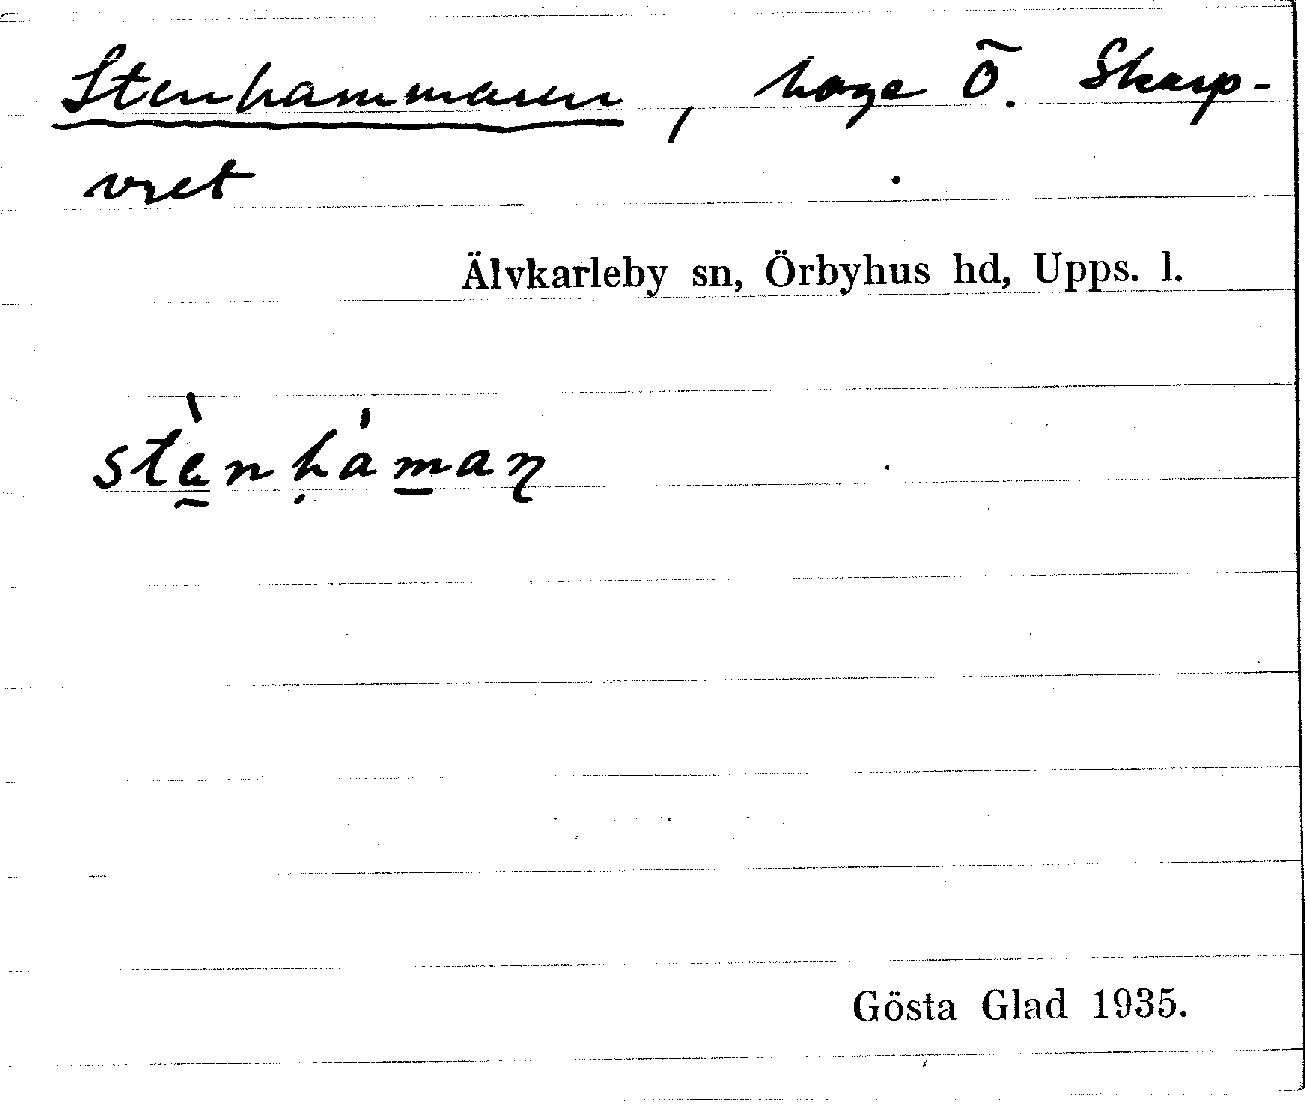 Stenhammaren, hage Ö. Skarp-
vret
Älvkarleby sn, Örbyhus hd, Upps. l.
stè̱nḥám̱aɳ
Gösta Glad 1935.